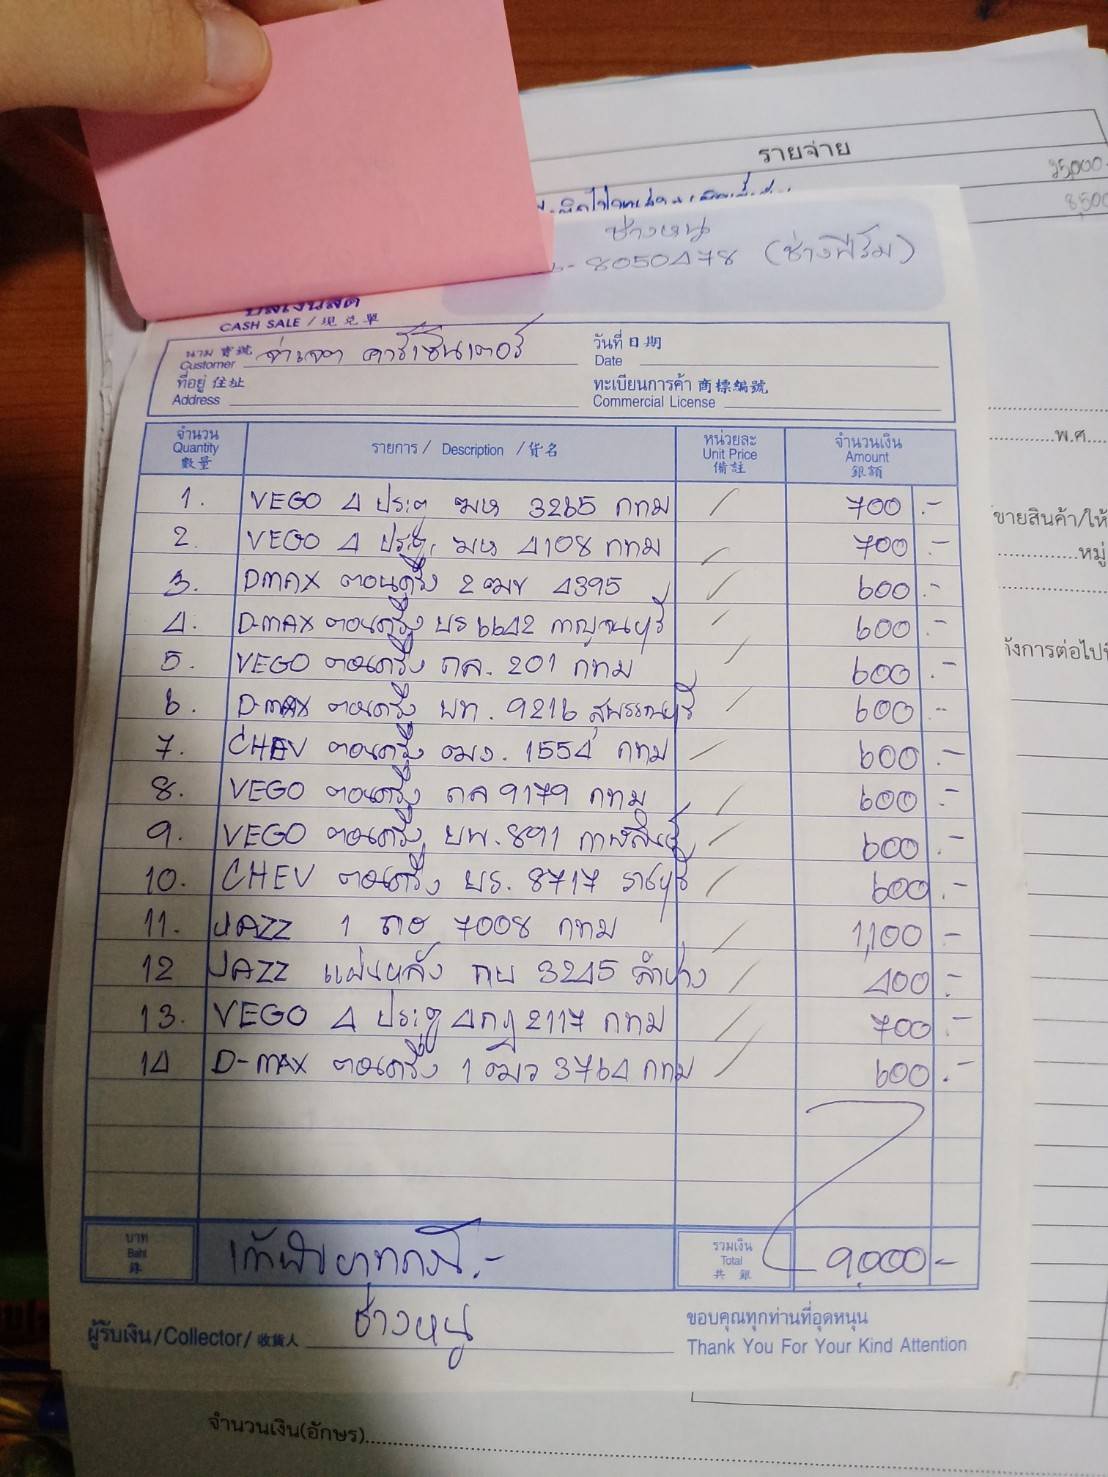 รายจ่าย
25,000.-
8,500
ช่างหนู
-8050478 (ช่างฟิร์ม)
บิลเงินสด
CASH SALE / 現兌單
นาม 寶號 จ่าเจต คาร์เซ็นเตอร์
Customer
วันที่ 日期
Date
ที่อยู่ 住址
Address
ทะเบียนการค้า 商標編號
Commercial License
จำนวน
Quantity
數量
รายการ / Description / 貨名
หน่วยละ
Unit Price
備註
จำนวนเงิน
Amount
銀額
1. VEGO 4 ประตู ฒห 3265 กทม 700 .-
2. VEGO 4 ประตู ฒห 4108 กทม 700 .-
3. DMAX ตอนครึ่ง 2 ฒฆ 4395 600 .-
4. D-MAX ตอนครึ่ง บร 6642 กาญจนบุรี 600 .-
5. VEGO ตอนครึ่ง ถล. 201 กทม 600 .-
6. D-MAX ตอนครึ่ง บท. 9216 สุพรรณบุรี 600 .-
7. CHEV ตอนครึ่ง ฒง. 1554 กทม 600 .-
8. VEGO ตอนครึ่ง ถล 9179 กทม 600 .-
9. VEGO ตอนครึ่ง บพ. 891 กาฬสินธุ์ 600 .-
10. CHEV ตอนครึ่ง บร. 8717 ราชบุรี 600 .-
11. JAZZ 1 7008 กทม 1,100 .-
12 JAZZ แผ่นหลัง กบ 3245 ลำปาง 400 .-
13. VEGO 4 ประตู 4กฎ 2117 กทม 700 .-
14 D-MAX ตอนครึ่ง 1 ฒว 3764 กทม 600 .-
บาท
Baht
銖
เก้าพันบาทถ้วน.-
รวมเงิน
Total
共銀
9,000 -
ผู้รับเงิน/Collector/ 收貨人 ช่างหนู
ขอบคุณทุกท่านที่อุดหนุน
Thank You For Your Kind Attention
พ.ศ.
ขายสินค้า/ให้
หมู่
จำนวนเงิน(อักษร)